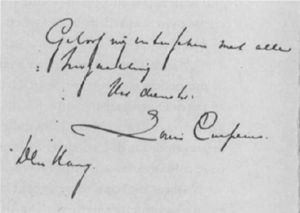 Geloof mij intusschen met alle
hoogachting
Uw dienstw.
Louis Couperus.
Den Haag.